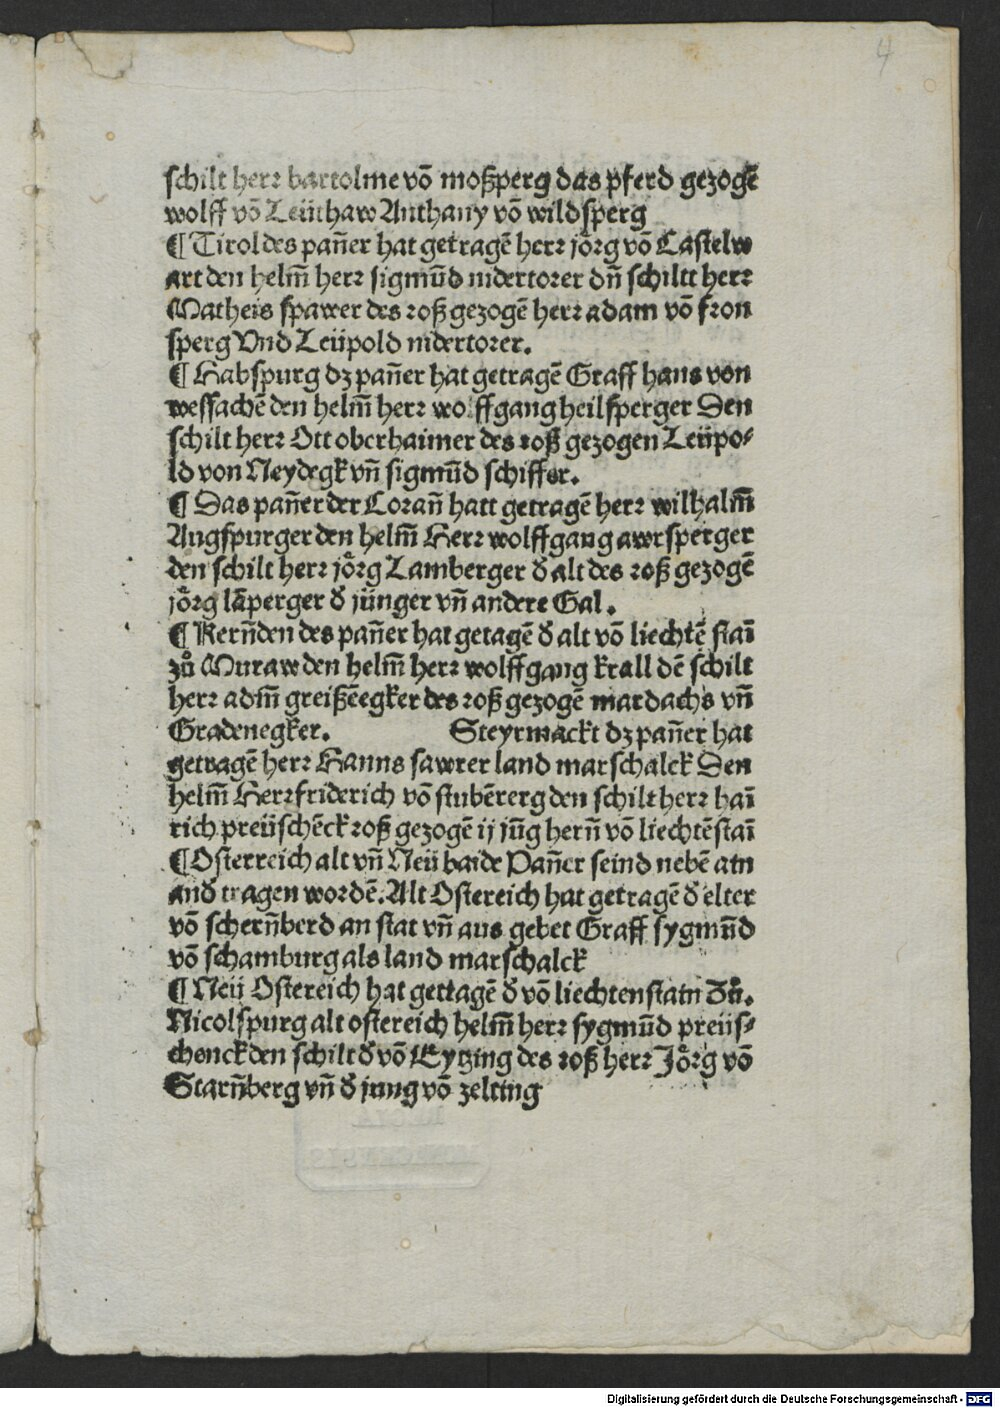 4
schilt herr bartolme võ moßperg das pferd gezogẽ
wolff võ Leüthaw Anthany võ wildsperg
¶ Tirol des pañer hat getragẽ herr jörg võ Castelw
art den helm̃ herr sigmũd nidertorer dñ schiltt herr
Matheis spawer des roß gezogẽ herr adam võ fron
sperg Vnd Leüpold nidertorer.
¶ Habspurg dz pañer hat getragẽ Graff hans von
wessachẽ den helm̃ herr wolffgang heilsperger Den
schilt herr Ott oberhaimer des roß gezogen Leüpo⸗
ld von Neydegk vñ sigmũd schiffer.
¶ Das pañer der Corañ hatt getragẽ herr wilhalm̃
Augspurger den helm̃ Herr wolffgang awrsperger
den schilt herr jörg Lamberger d̾ alt des roß gezogẽ
jörg lãperger d̾ jünger vñ andere Gal.
¶ Kerñden des pañer hat getagẽ d̾ alt võ liechtẽ staĩ
zů Muraw den helm̃ herr wolffgang krall dẽ schilt
herr adm̃ greißẽegker des roß gezogẽ mardachs vñ
Gradenegker. Steyrmackt dz pañer hat
getragẽ herr Hanns sawrer land marschalck Den
helm̃ Herr friderich võ stubẽrerg den schilt herr haĩ
rich preüschẽck roß gezogẽ ij jũg herñ võ liechtẽstaĩ
¶ Osterreich alt vñ Neü baide Pañer seind nebẽ ain
and tragen wordẽ. Alt Ostereich hat getragẽ d̾ elter
võ scherñberd an stat vñ aus gebet Graff sygmũd
võ schamburg als land marschalck
¶ Neü Ostereich hat gettagẽ d̾ võ liechtenstain Zů.
Nicolspurg alt ostereich helm̃ herr sygmũd preüs⸗
chenck den schilt d̾ võ Eytzing des roß herr Jörg võ
Starñberg vñ d̾ jung võ zelting
Digitalisierung gefördert durch die Deutsche Forschungsgemeinschaft - DFG